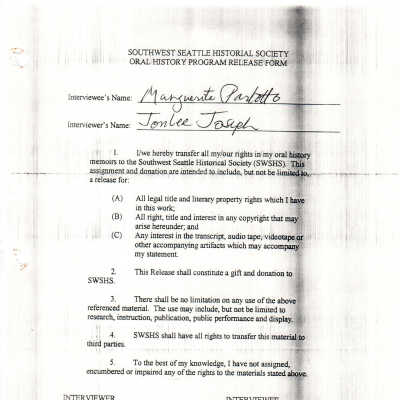 SOUTHWEST SEATTLE HISTORICAL SOCIETY
ORAL HISTORY PROGRAM RELEASE FORM
Interviewee's Name: Marguerite Parlotto
Interviewer's Name: Jonlee Joseph
1. I/we hereby transfer all my/our rights in my oral history
memoirs to the Southwest Seattle Historical Society (SWSHS). This
assignment and donation are intended to include, but not be limited to,
a release for:
(A) All legal title and literary property rights which I have
in this work;
(B) All right, title and interest in any copyright that may
arise hereunder; and
(C) Any interest in the transcript, audio tape, videotape or
other accompanying artifacts which may accompany
my statement.
2. This Release shall constitute a gift and donation to
SWSHS.
3. There shall be no limitation on any use of the above
referenced material. The use may include, but not be limited to
research, instruction, publication, public performance and display.
4. SWSHS shall have all rights to transfer this material to
third parties.
5. To the best of my knowledge, I have not assigned,
encumbered or impaired any of the rights to the materials stated above.
INTERVIEWER INTERVIEWEE